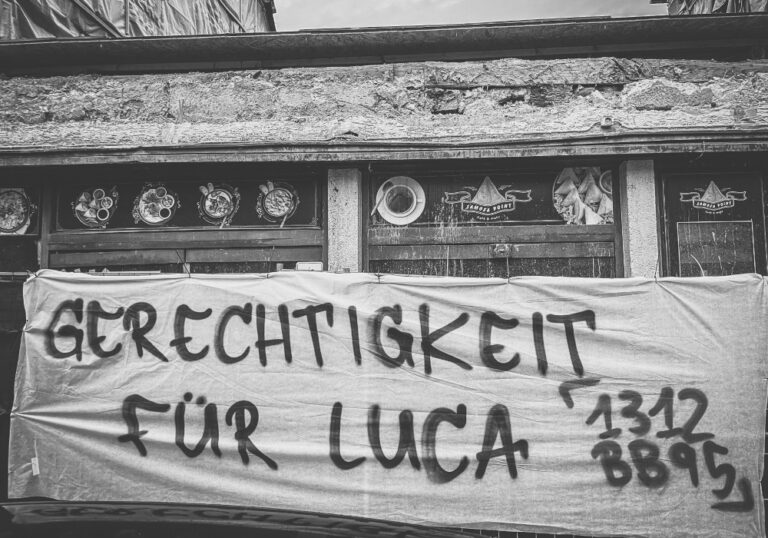 SAMOSA POINT
SAMOSA POINT
GERECHTIGKEIT
FÜR LUCA
1312
BB95